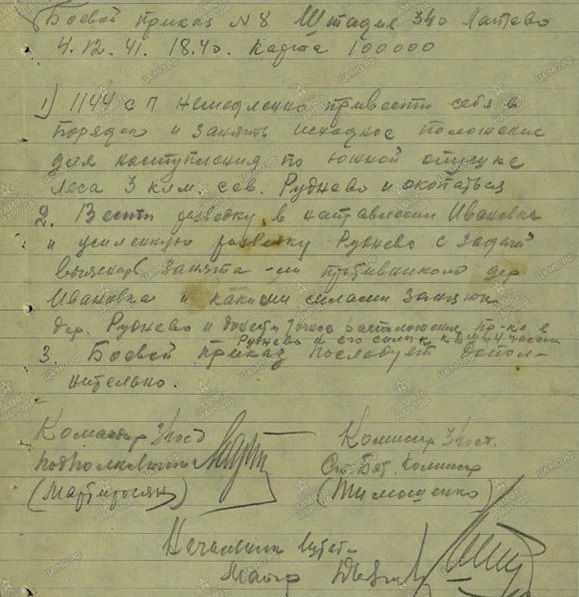 Боевой приказ N 8 Штадив 340 Лаптево
4.12.41. 18.40. Карта 100000
1) 1144 сп немедленно привести себя в
порядок и занять исходное положение
для наступления по южной опушке
леса 3 клм. сев. Руднево и окопаться
2. Вести разведку в направлении Ивановка
и усиленную разведку Руднево с задачей
занята -ли противником дер
Ивановка и какими силами занято
дер. Руднево и точно расположение пр-ка в
Руднево и его силы к
3. Боевой приказ последует допол-
нительно.
Командир 340сд
подполковник
(Мартиросян)
Комиссар 340сд.
Ст. Бат. Комиссар
(Тимошенко)
Начальник штаба
Майор